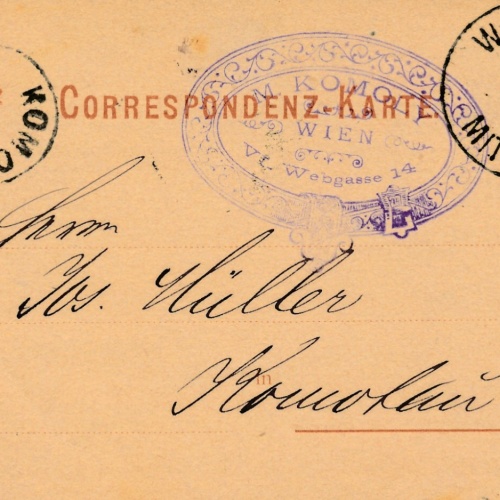 CORRESPONDENZ-KARTE.
M. KOMONY
WIEN
VI. Webgasse 14
KOMO
W
MIT
Herrn
Jos. Müller
in
Komotau